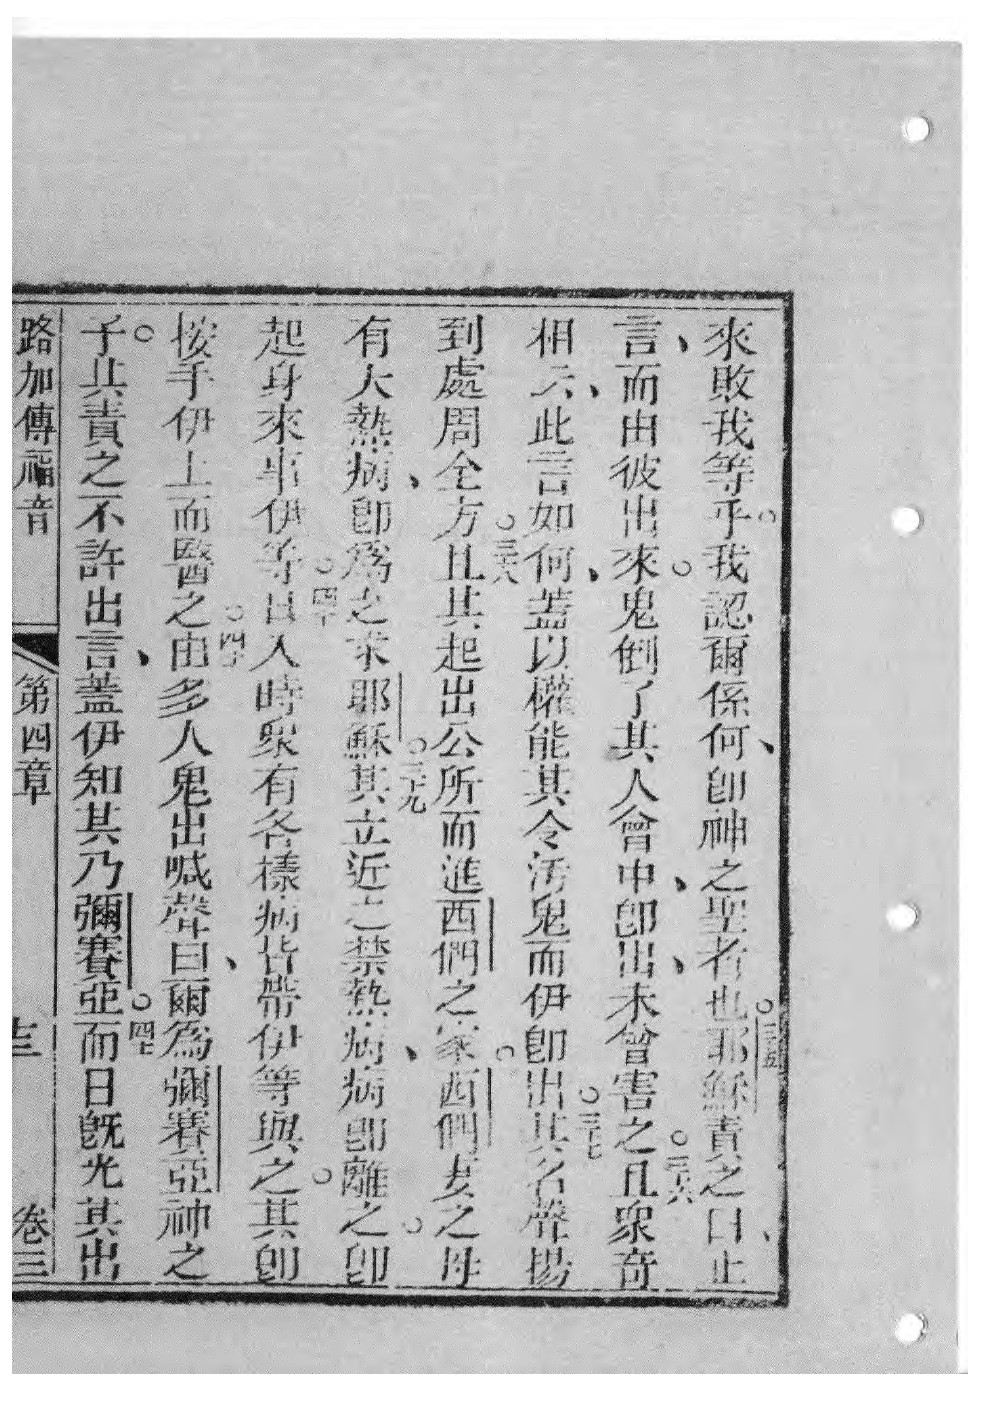 來敗我等乎。我認爾係何、卽神之聖者也。三五耶穌責之曰、止
言、而由彼出來。鬼倒了其人曾中、卽出、未曾害之。三六且衆奇
相云、此言如何、蓋以權能其令汚鬼而伊卽出。三七其名聲揚
到處周全方。三八且其起出公所而進西們之家。西們妻之母
有大熱病、卽爲之求耶穌。三九其立近之禁熱病、病卽離之。卽
起身來事伊等。四十日入時衆有各樣病皆帶伊等與之。其卽
按手伊上而醫之。四十由多人鬼出喊聲曰、爾爲彌賽亞神之
子。其責之不許出言、蓋伊知其乃彌賽亞。四七而日旣光其出
路加傳福音 第四章 卷三